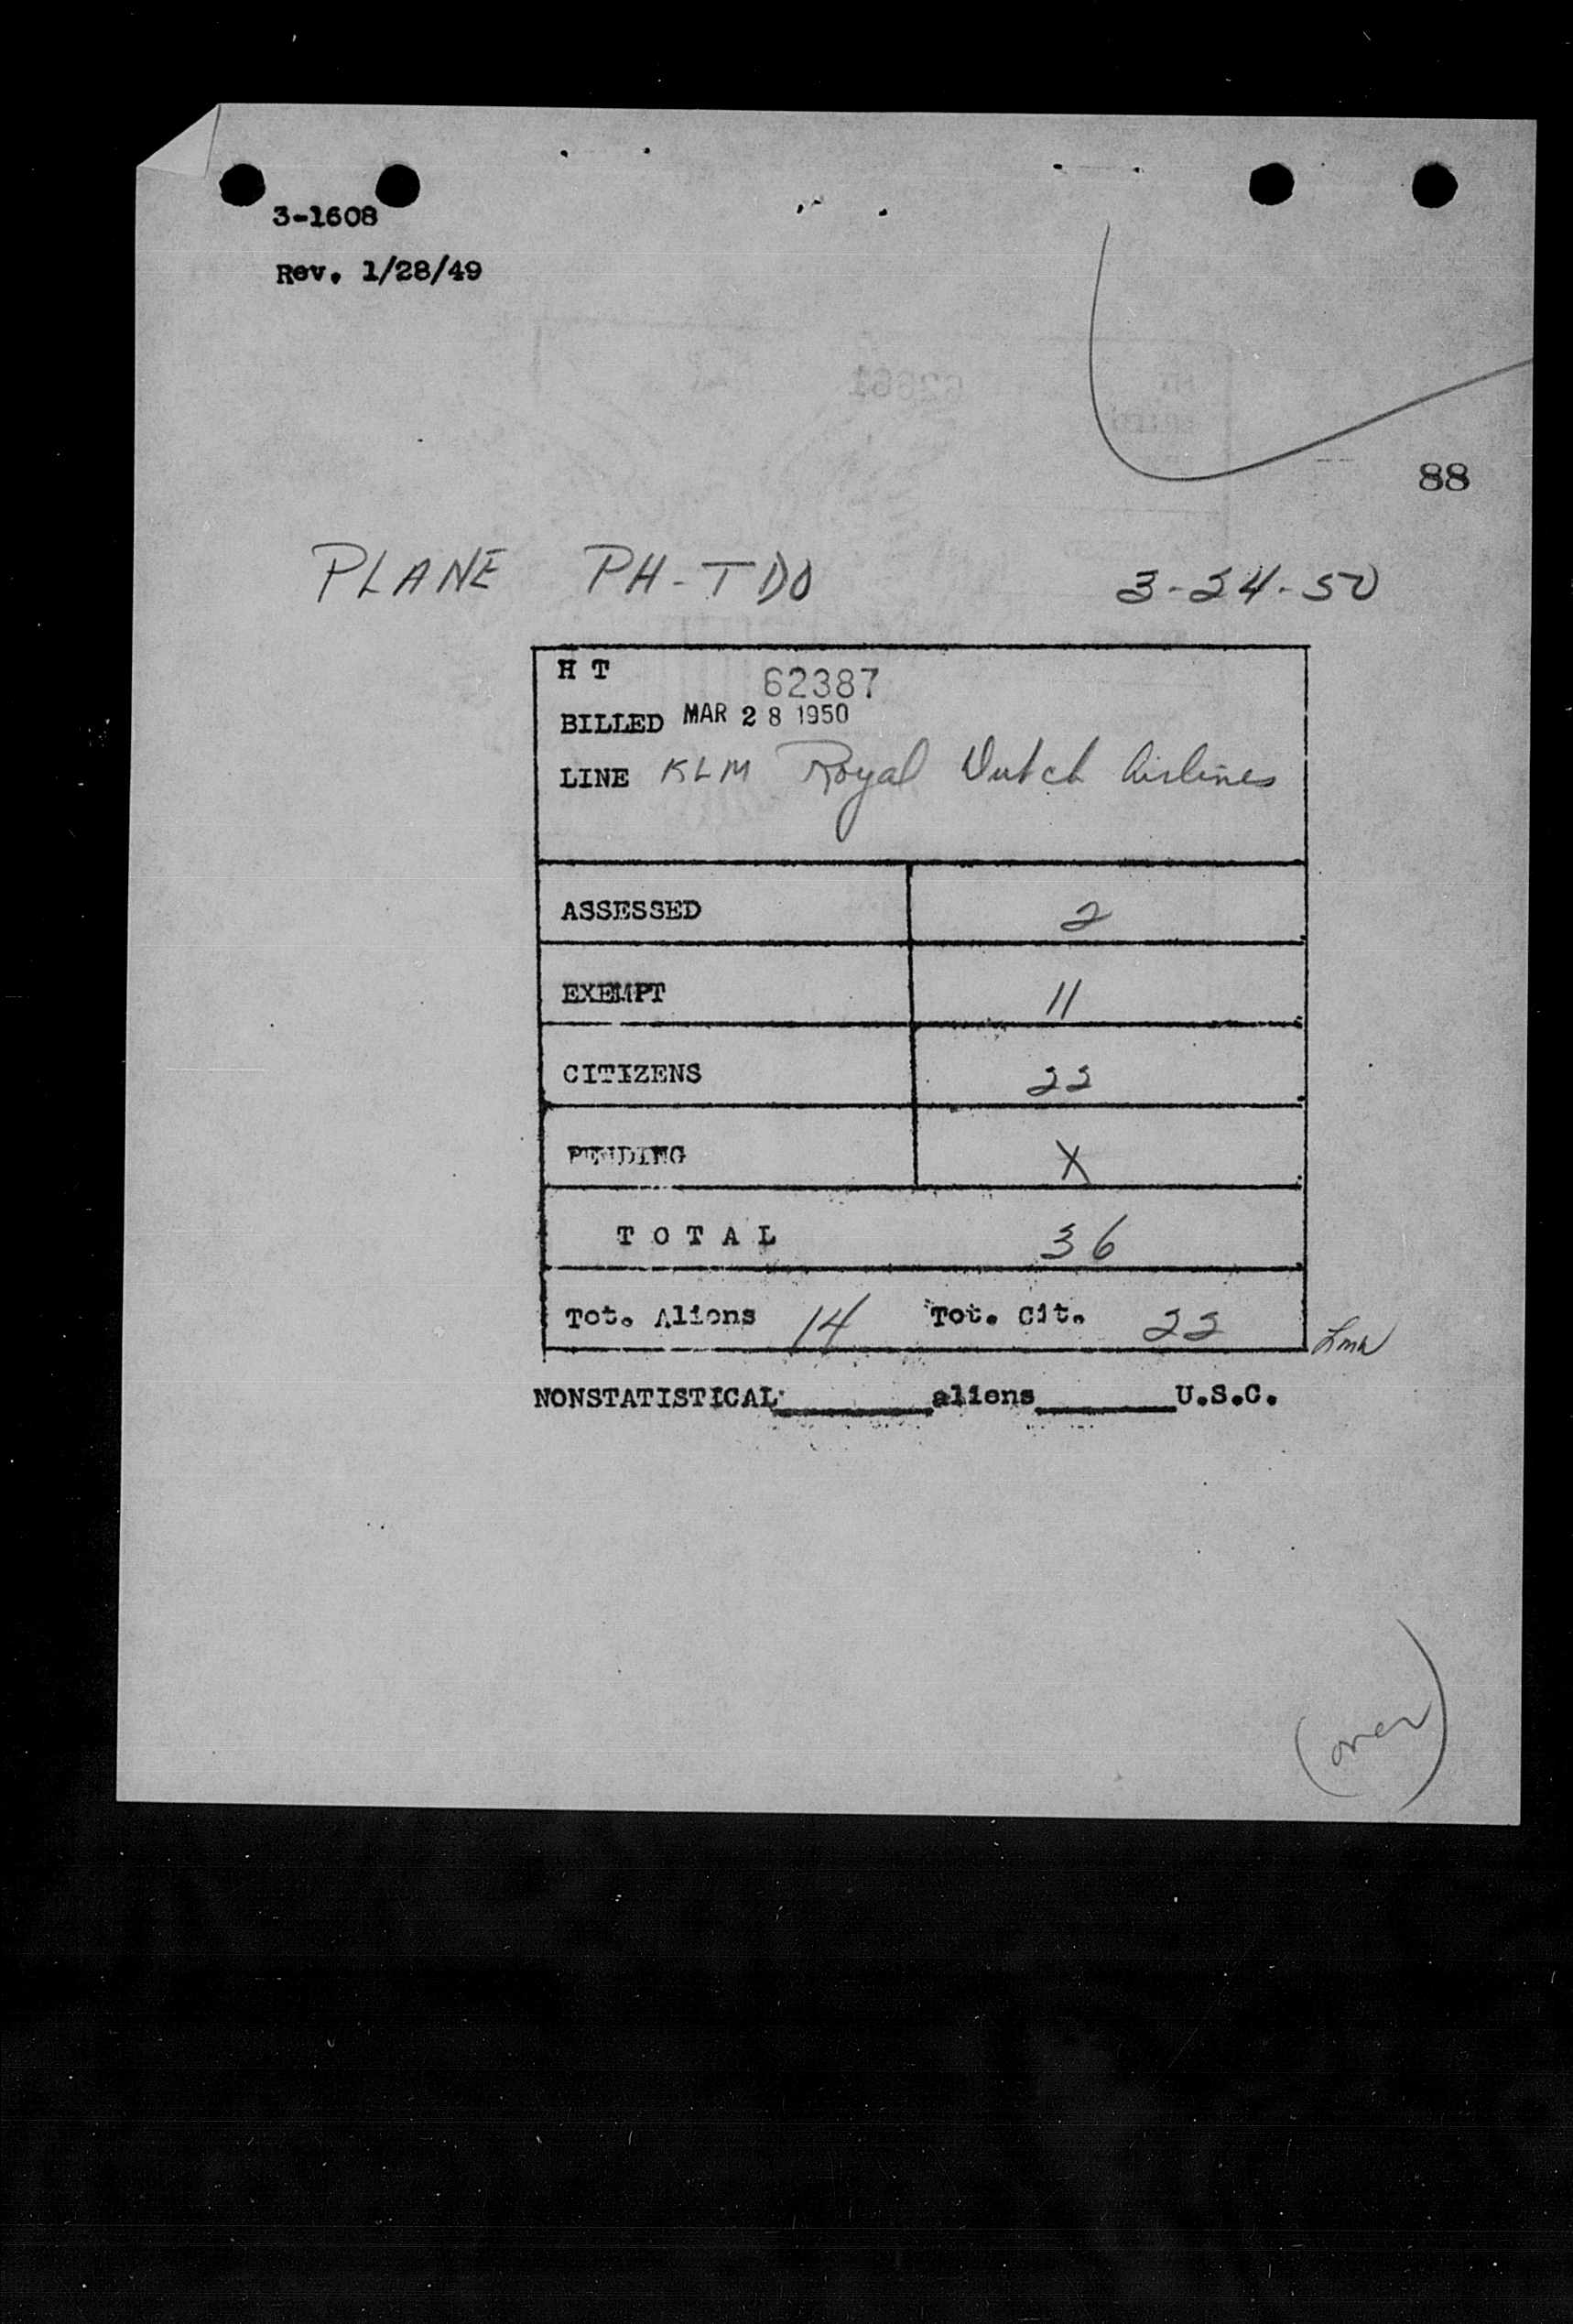 3-1608
Rev. 1/28/49
88
PLANE PH-TDO 3-24-50
H T 62387
BILLED MAR 28 1950
LINE KLM Royal Dutch Airlines
ASSESSED 2
EXEMPT 11
CITIZENS 22
PENDING X
TOTAL 36
Tot. Aliens 14 Tot. Cit. 22
NONSTATISTICAL aliens U.S.C.
(over)